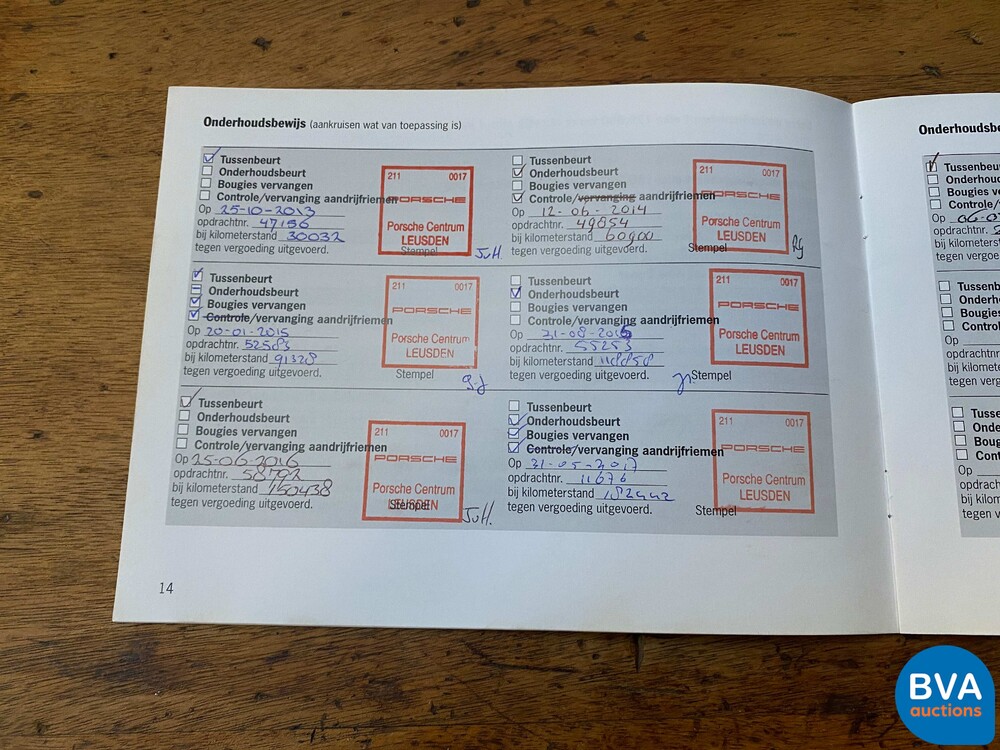 Onderhoudsbewijs (aankruisen wat van toepassing is)
Tussenbeurt
Onderhoudsbeurt
Bougies vervangen
Controle/vervanging aandrijfriemen
Op 25-10-2013
opdrachtnr. 47156
bij kilometerstand 30032
tegen vergoeding uitgevoerd.
211 0017
PORSCHE
Porsche Centrum
LEUSDEN
Stempel
JvH.
Tussenbeurt
Onderhoudsbeurt
Bougies vervangen
Controle/vervanging aandrijfriemen
Op 12-06-2014
opdrachtnr. 49854
bij kilometerstand 60900
tegen vergoeding uitgevoerd.
211 0017
PORSCHE
Porsche Centrum
LEUSDEN
Stempel
Tussenbeurt
Onderhoudsbeurt
Bougies vervangen
Controle/vervanging aandrijfriemen
Op 20-01-2015
opdrachtnr. 52583
bij kilometerstand 91328
tegen vergoeding uitgevoerd.
211 0017
PORSCHE
Porsche Centrum
LEUSDEN
Stempel
Tussenbeurt
Onderhoudsbeurt
Bougies vervangen
Controle/vervanging aandrijfriemen
Op
opdrachtnr. 55253
bij kilometerstand
tegen vergoeding uitgevoerd.
211 0017
PORSCHE
Porsche Centrum
LEUSDEN
Stempel
Tussenbeurt
Onderhoudsbeurt
Bougies vervangen
Controle/vervanging aandrijfriemen
Op 25-06-2016
opdrachtnr. 58792
bij kilometerstand 150438
tegen vergoeding uitgevoerd.
211 0017
PORSCHE
Porsche Centrum
LEUSDEN
Stempel
JvH.
Tussenbeurt
Onderhoudsbeurt
Bougies vervangen
Controle/vervanging aandrijfriemen
Op 31-05-2017
opdrachtnr. 11676
bij kilometerstand 182442
tegen vergoeding uitgevoerd.
211 0017
PORSCHE
Porsche Centrum
LEUSDEN
Stempel
14
Onderhoudsbe
Tussenbeu
Onderhou
Bougies v
Controle/
Op
opdrachtnr.
bij kilometers
tegen vergoe
Tussenb
Onderho
Bougies
Controle
Op
opdrachtn
bij kilomet
tegen verg
Tussenb
Onderh
Bougie
Contro
Op
opdracht
bij kilom
tegen v
BVA
auctions